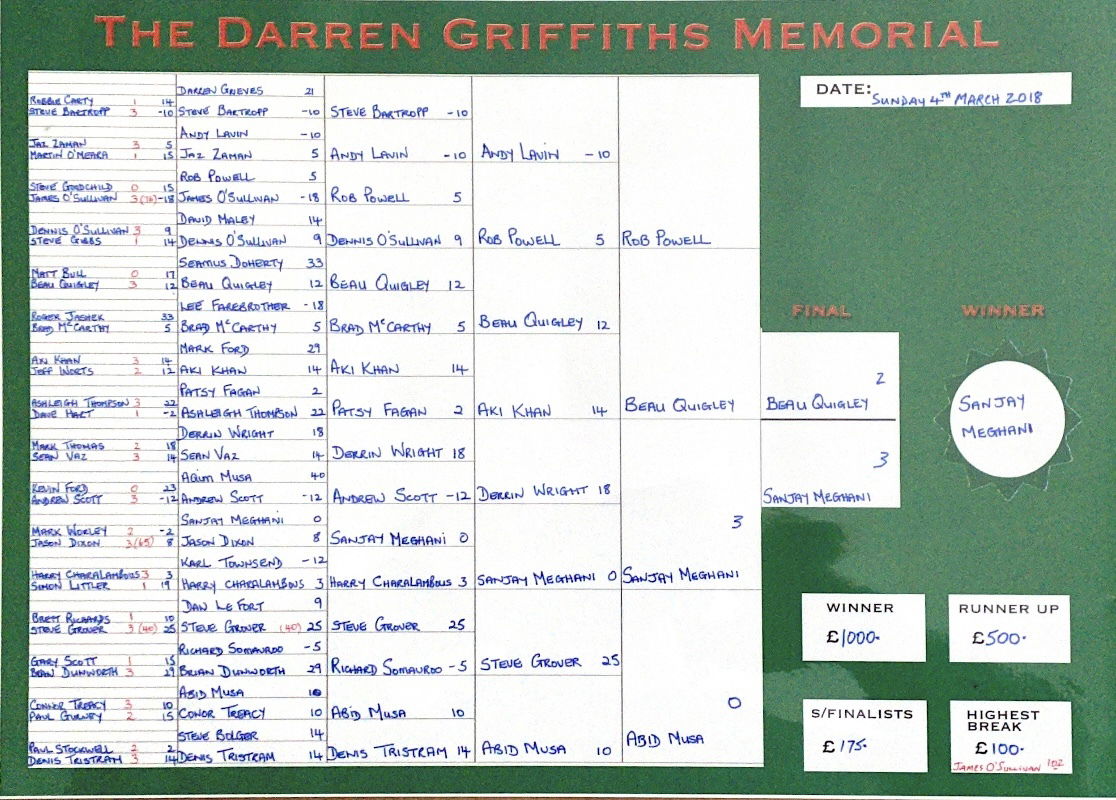 THE DARREN GRIFFITHS MEMORIAL
DATE: SUNDAY 4TH MARCH 2018
ROBBIE CARTY 1 14
STEVE BARTROPP 3 -10
JAZ ZAMAN 3 5
MARTIN O'MEARA 1 15
STEVE GOODCHILD 0 15
JAMES O'SULLIVAN 3 (76) -18
DENNIS O'SULLIVAN 3 9
STEVE GIBBS 1 14
MATT BULL 0 17
BEAU QUIGLEY 3 12
ROGER JASHEK 33
BRAD McCARTHY 5
AKI KHAN 3 14
JEFF WORTS 2 12
ASHLEIGH THOMPSON 3 22
DAVE HART 1 -2
MARK THOMAS 2 18
SEAN VAZ 3 14
KEVIN FORD 0 23
ANDREW SCOTT 3 -12
MARK WORLEY 2 -2
JASON DIXON 3 (65) 8
HARRY CHARALAMBOUS 3 3
SIMON LITTLER 1 19
BRETT RICHARDS 1 10
STEVE GROVER 3 (40) 25
GARY SCOTT 1 15
BRIAN DUNWORTH 3 29
CONNOR TREACY 3 10
PAUL GURNEY 2 15
PAUL STOCKWELL 2 2
DENIS TRISTRAM 3 14
DARREN GRIEVES 21
STEVE BARTROPP -10
ANDY LAVIN -10
JAZ ZAMAN 5
ROB POWELL 5
JAMES O'SULLIVAN -18
DAVID MALEY 14
DENNIS O'SULLIVAN 9
SEAMUS DOHERTY 33
BEAU QUIGLEY 12
LEE FAREBROTHER -18
BRAD McCARTHY 5
MARK FORD 29
AKI KHAN 14
PATSY FAGAN 2
ASHLEIGH THOMPSON 22
DERRIN WRIGHT 18
SEAN VAZ 14
AGIM MUSA 40
ANDREW SCOTT -12
SANJAY MEGHANI 0
JASON DIXON 8
KARL TOWNSEND -12
HARRY CHARALAMBOUS 3
DAN LE FORT 9
STEVE GROVER (40) 25
RICHARD SOMAUROO -5
BRIAN DUNWORTH 29
ABID MUSA 10
CONOR TREACY 10
STEVE BOLGER 14
DENIS TRISTRAM 14
STEVE BARTROPP -10
ANDY LAVIN -10
ROB POWELL 5
DENNIS O'SULLIVAN 9
BEAU QUIGLEY 12
BRAD McCARTHY 5
AKI KHAN 14
PATSY FAGAN 2
DERRIN WRIGHT 18
ANDREW SCOTT -12
SANJAY MEGHANI 0
HARRY CHARALAMBOUS 3
STEVE GROVER 25
RICHARD SOMAUROO -5
ABID MUSA 10
DENIS TRISTRAM 14
ANDY LAVIN -10
ROB POWELL 5
BEAU QUIGLEY 12
AKI KHAN 14
DERRIN WRIGHT 18
SANJAY MEGHANI 0
STEVE GROVER 25
ABID MUSA 10
ROB POWELL
BEAU QUIGLEY
3
SANJAY MEGHANI
0
ABID MUSA
FINAL
2
BEAU QUIGLEY
3
SANJAY MEGHANI
WINNER
SANJAY
MEGHANI
WINNER
£1000.
RUNNER UP
£500.
S/FINALISTS
£175.
HIGHEST
BREAK
£100.
JAMES O'SULLIVAN 102